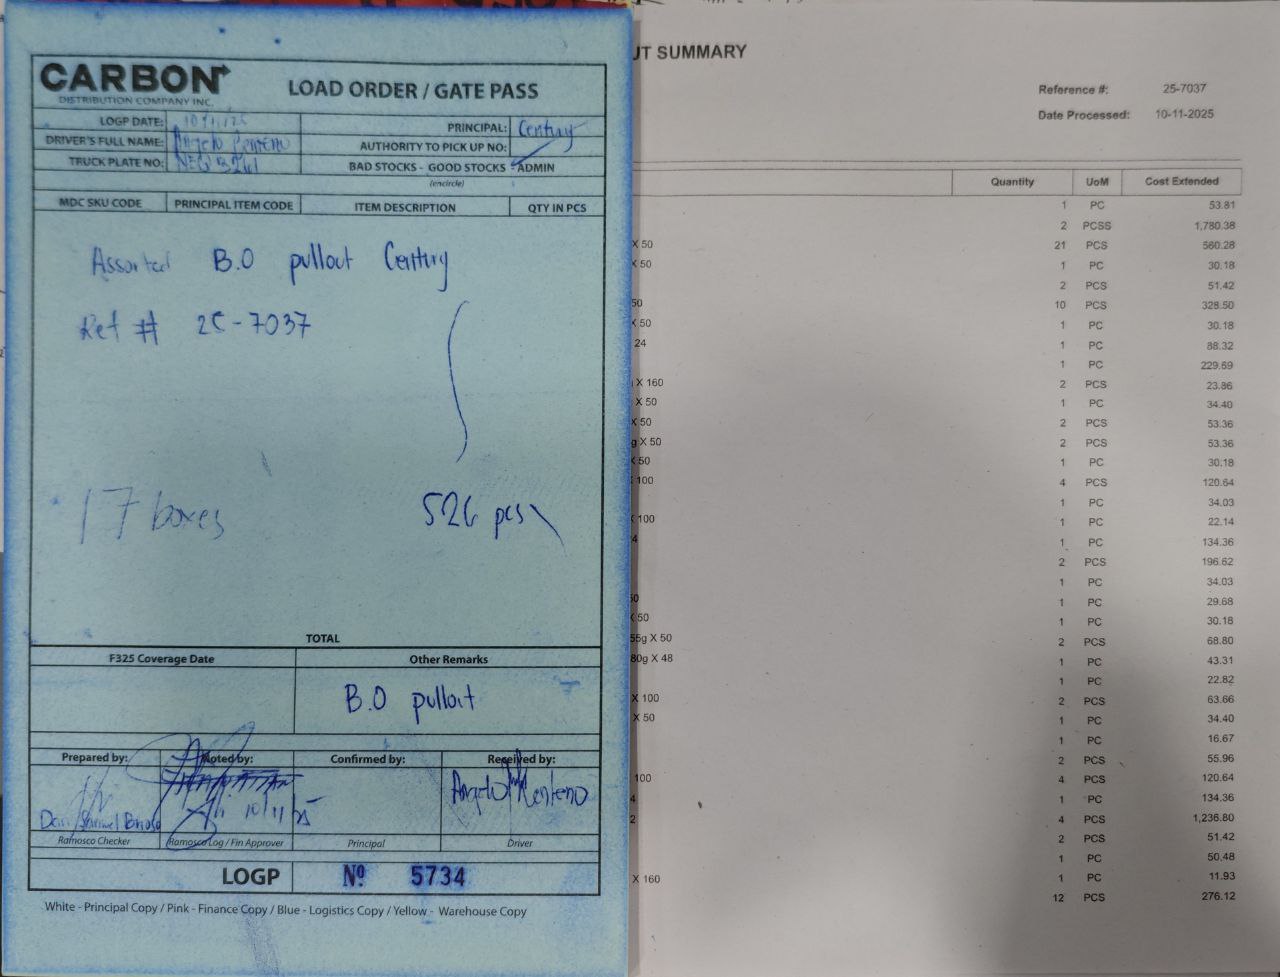 CARBON
DISTRIBUTION COMPANY INC.
LOAD ORDER / GATE PASS
LOGP DATE: 10/11/25
PRINCIPAL: Century
DRIVER'S FULL NAME: Angelo
AUTHORITY TO PICK UP NO:
TRUCK PLATE NO:
BAD STOCKS - GOOD STOCKS - ADMIN
(encircle)
MDC SKU CODE PRINCIPAL ITEM CODE ITEM DESCRIPTION QTY IN PCS
Assorted B.O pullout Century
Ref # 25-7037
17 boxes 526 pcs
TOTAL
F325 Coverage Date Other Remarks
B.O pullout
Prepared by: Noted by: Confirmed by: Received by:
Angelo
10/11/25
Ramosco Checker Ramosco Log / Fin Approver Principal Driver
LOGP Nº 5734
White - Principal Copy / Pink - Finance Copy / Blue - Logistics Copy / Yellow - Warehouse Copy
UT SUMMARY
Reference #: 25-7037
Date Processed: 10-11-2025
Quantity UoM Cost Extended
1 PC 53.81
2 PCSS 1,780.38
X 50 21 PCS 560.28
X 50 1 PC 30.18
2 PCS 51.42
50 10 PCS 328.50
X 50 1 PC 30.18
24 1 PC 88.32
1 PC 229.69
X 160 2 PCS 23.86
X 50 1 PC 34.40
X 50 2 PCS 53.36
g X 50 2 PCS 53.36
X 50 1 PC 30.18
100 4 PCS 120.64
1 PC 34.03
X 100 1 PC 22.14
4 1 PC 134.36
2 PCS 196.62
1 PC 34.03
50 1 PC 29.68
X 50 1 PC 30.18
55g X 50 2 PCS 68.80
80g X 48 1 PC 43.31
1 PC 22.82
X 100 2 PCS 63.66
X 50 1 PC 34.40
1 PC 16.67
2 PCS 55.96
100 4 PCS 120.64
4 1 PC 134.36
2 4 PCS 1,236.80
2 PCS 51.42
1 PC 50.48
X 160 1 PC 11.93
12 PCS 276.12